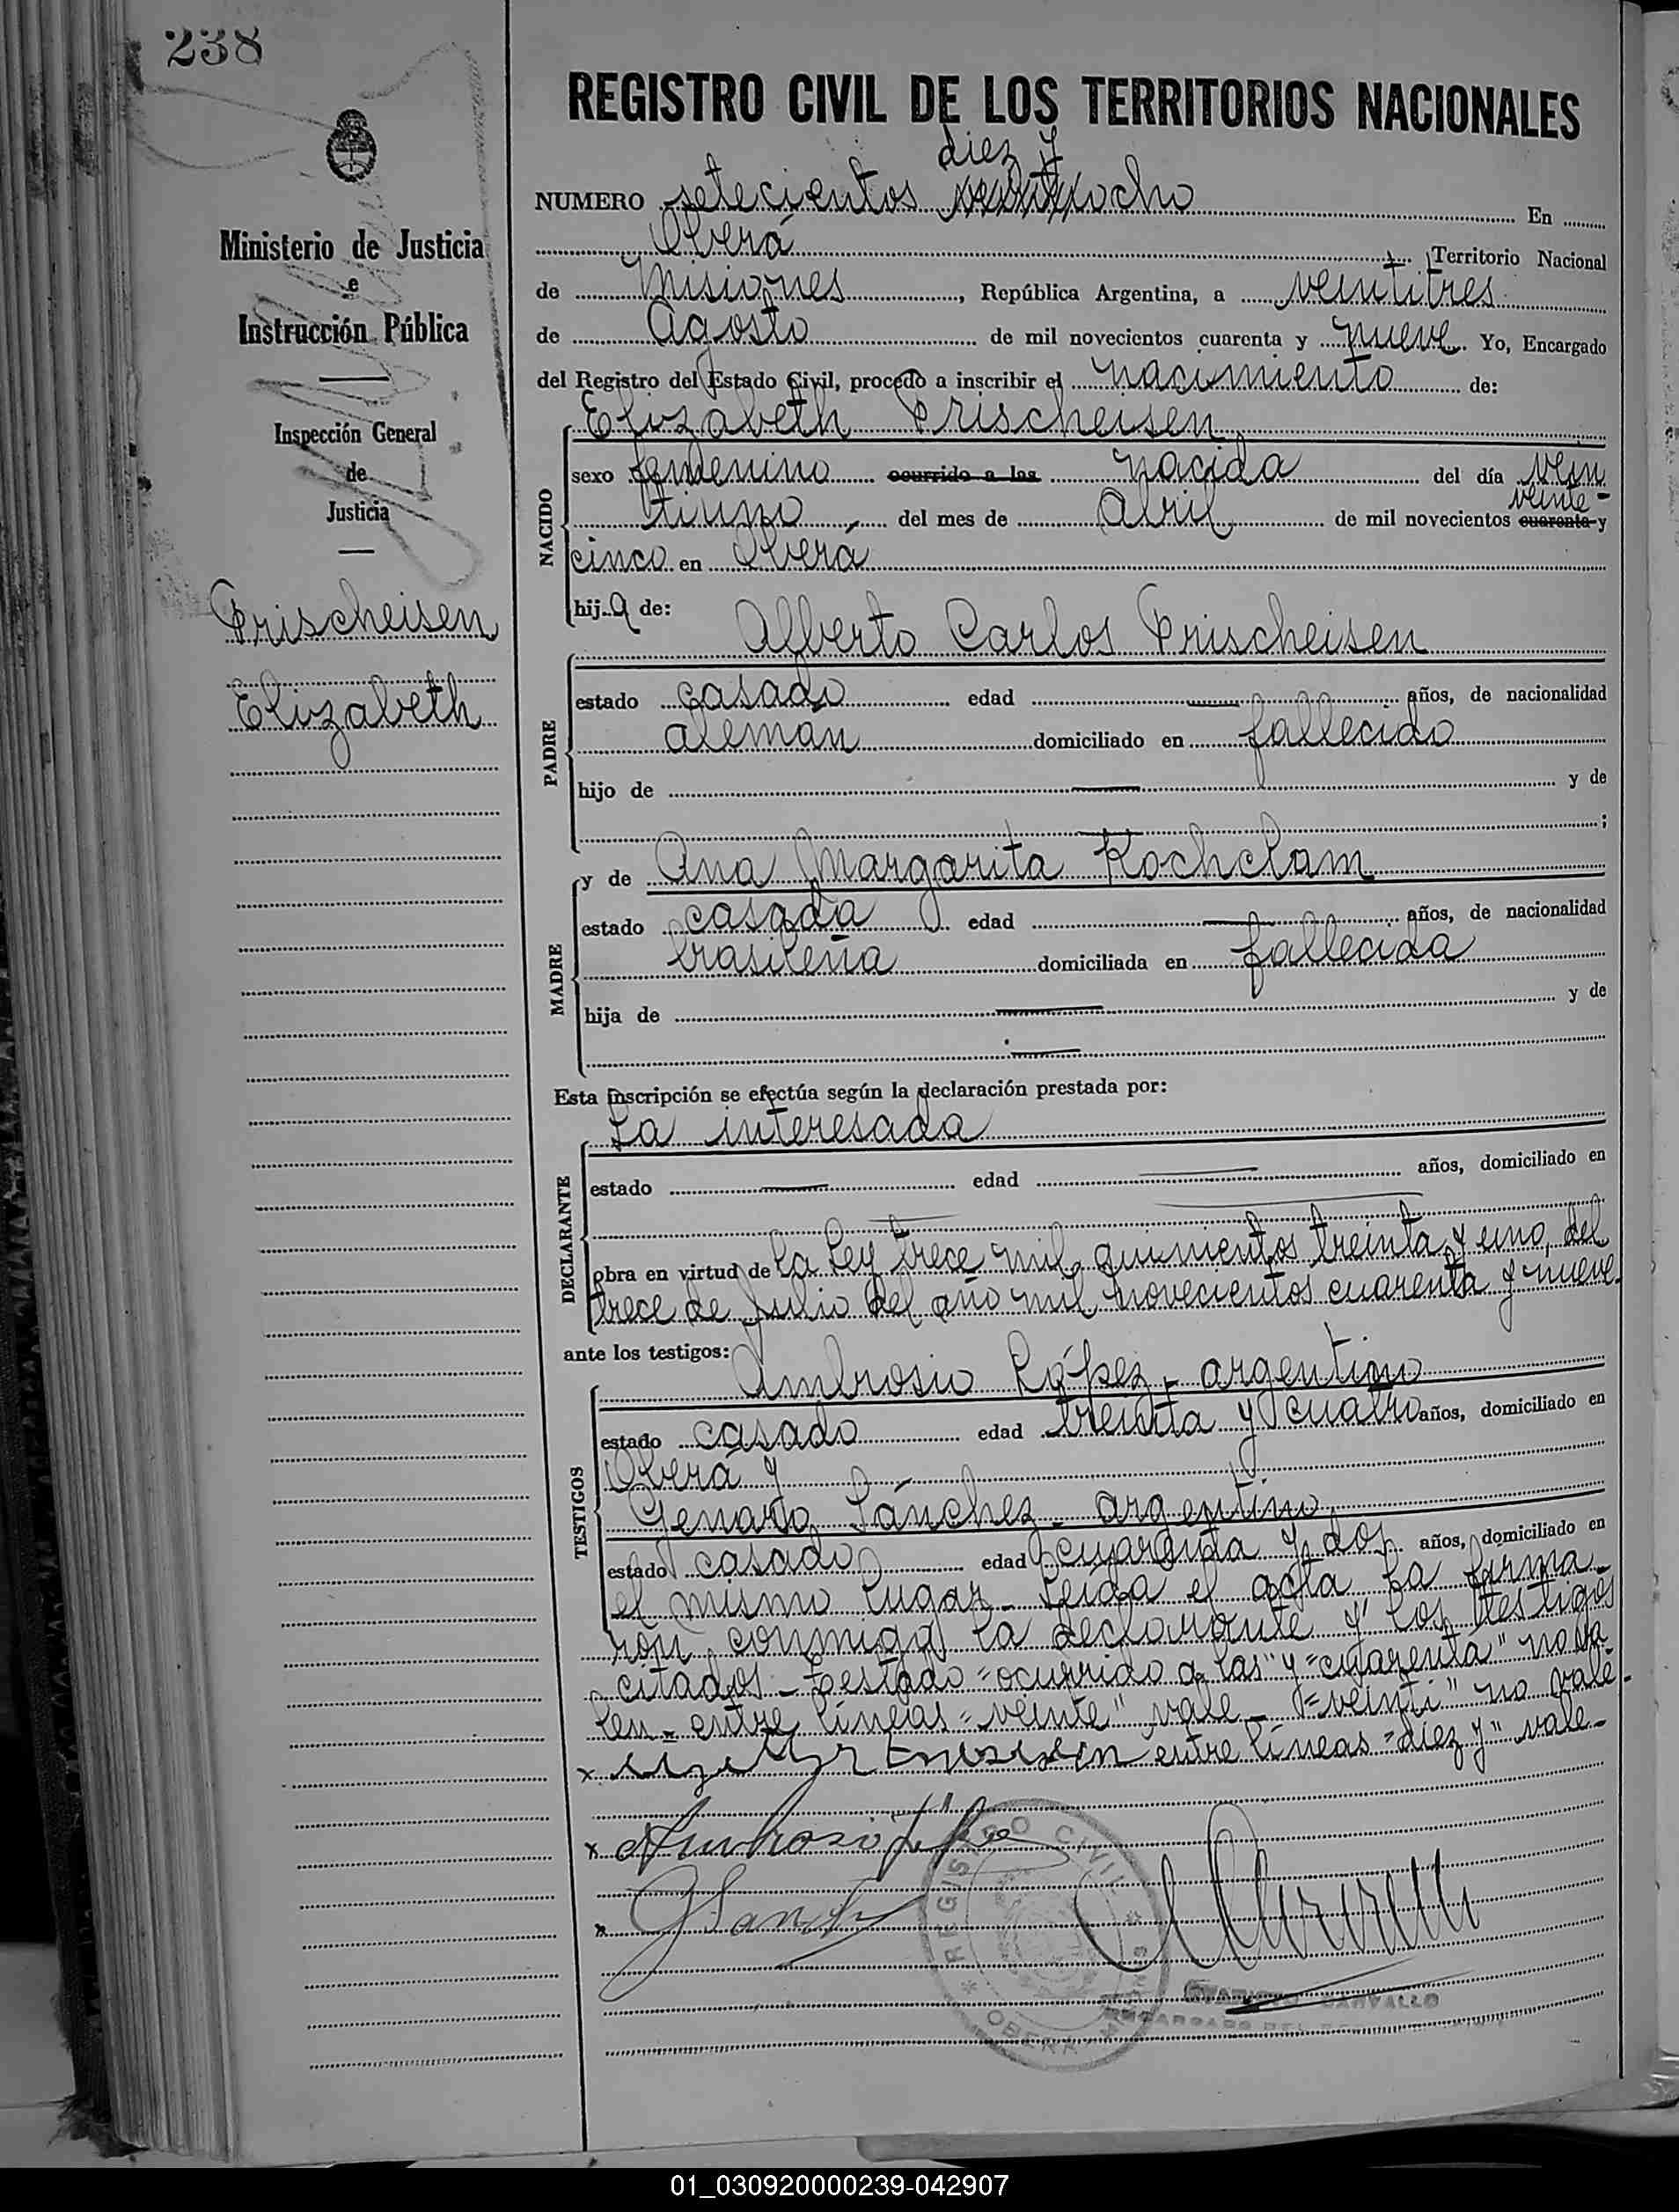 238
REGISTRO CIVIL DE LOS TERRITORIOS NACIONALES
diez y
NUMERO setecientos veintiocho En
Oberá Territorio Nacional
de Misiones, República Argentina, a veintitres
de Agosto de mil novecientos cuarenta y nueve. Yo, Encargado
del Registro del Estado Civil, procedo a inscribir el nacimiento de:
Elizabeth Prischeisen
sexo femenino ocurrido a las nacida del día vein
veinte-
tiuno, del mes de Abril de mil novecientos cuarenta y
cinco en Oberá
hija de:
NACIDO
Alberto Carlos Prischeisen
estado casado edad años, de nacionalidad
alemán domiciliado en fallecido
hijo de y de
;
PADRE
y de Ana Margarita Kochclam
estado casada edad años, de nacionalidad
brasileña domiciliada en fallecida
hija de y de
MADRE
Esta inscripción se efectúa según la declaración prestada por:
La interesada
estado edad años, domiciliado en
obra en virtud de la Ley trece mil quinientos treinta y uno, del
trece de Julio del año mil novecientos cuarenta y nueve.
DECLARANTE
ante los testigos:
Ambrosio López - argentino
estado casado edad treinta y cuatro años, domiciliado en
Oberá y
Genaro Sánchez - argentino
estado casado edad cuarenta y dos años, domiciliado en
el mismo lugar - Leida el acta la firma-
TESTIGOS
ron conmigo la declarante y los testigos
citados - Testado "ocurrido a las" y "cuarenta" no va-
len - entre líneas "veinte" vale - "veinti" no vale -
x entre líneas "diez y" vale -
x Ambrosio López
x G Sanchez
REGISTRO CIVIL
OBERA
CARVALLO
ENCARGADO DEL
Ministerio de Justicia
e
Instrucción Pública
Inspección General
de
Justicia
Prischeisen
Elizabeth
01_030920000239-042907